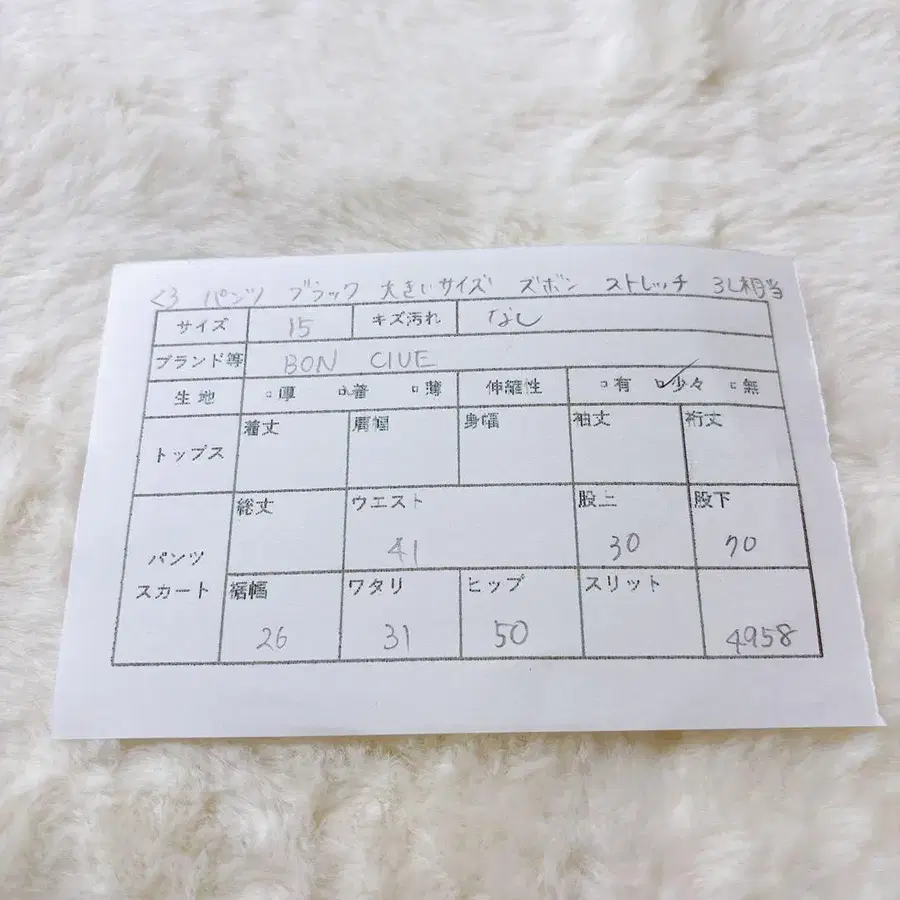 くろ パンツ ブラック 大きいサイズ ズボン ストレッチ 3L相当
サイズ 15 キズ汚れ なし
ブランド等 BON CIUE
生地 □厚 □着 □薄 伸縮性 □有 ☑少々 □無
トップス 着丈 肩幅 身幅 袖丈 裄丈
パンツ スカート
総丈 ウエスト 41 股上 30 股下 70
裾幅 26 ワタリ 31 ヒップ 50 スリット 4958